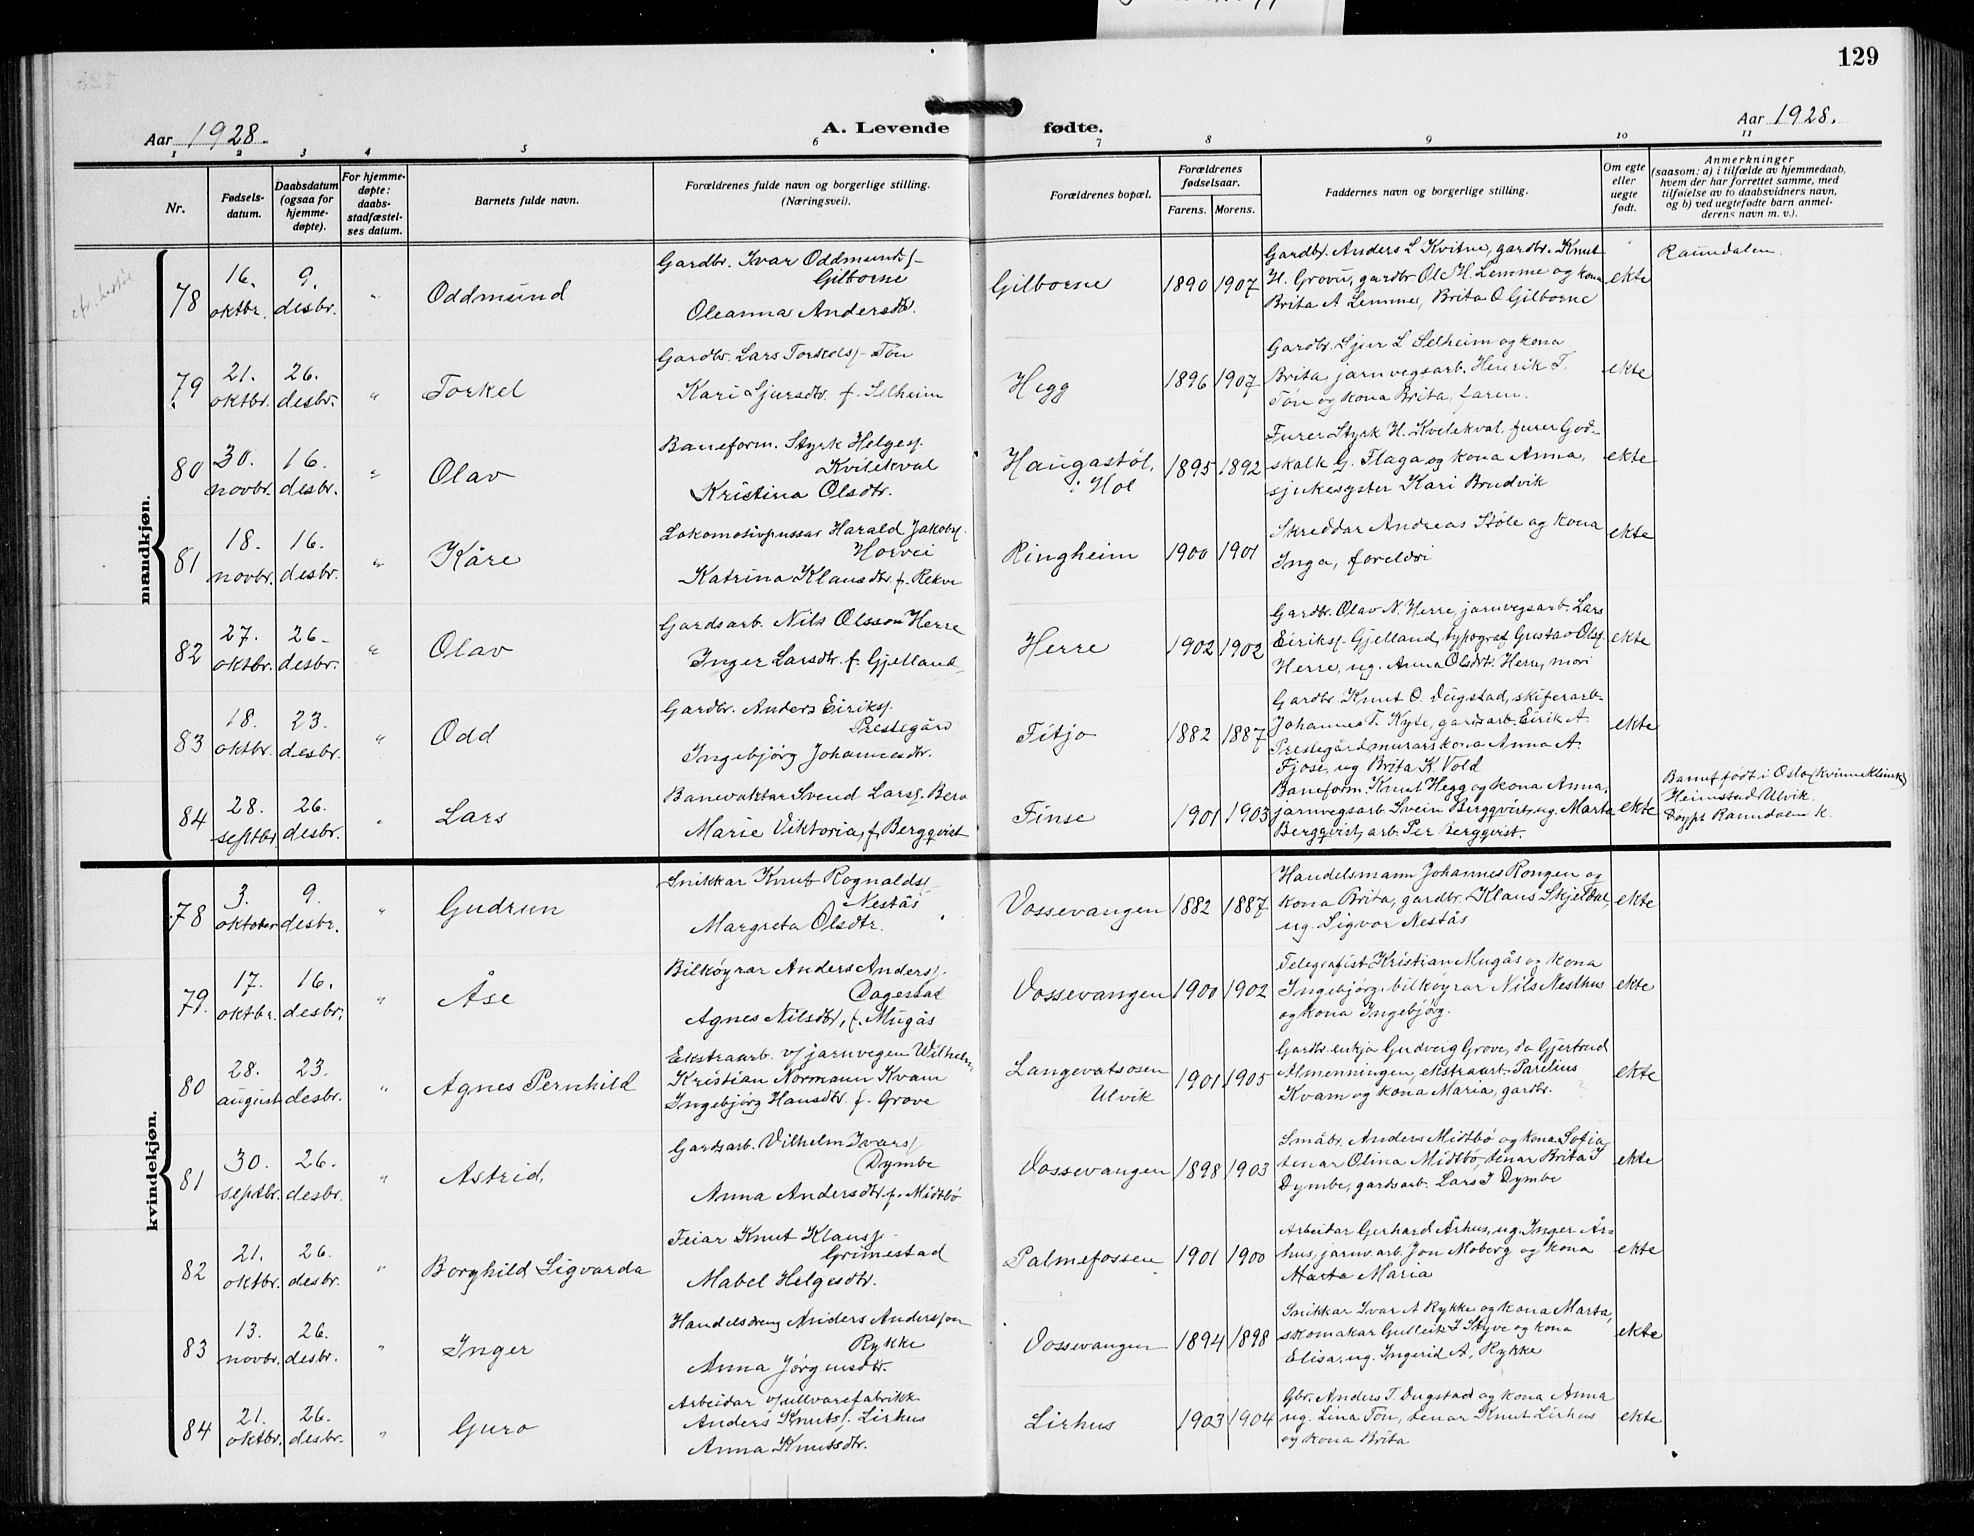 129
Aar 1928.
A. Levende fødte.
Aar 1928.
1 2 3 4 5 6 7 8 9 10 11
Nr.
Fødsels-
datum.
Daabsdatum
(ogsaa for
hjemme-
døpte).
For hjemme-
døpte:
daabs-
stadfæstel-
ses datum.
Barnets fulde navn.
Forældrenes fulde navn og borgerlige stilling.
(Næringsvei).
Forældrenes bopæl.
Forældrenes
fødselsaar.
Farens. Morens.
Faddernes navn og borgerlige stilling.
Om egte
eller
uegte
født.
Anmerkninger
(saasom: a) i tilfælde av hjemmedaab,
hvem der har forrettet samme, med
tilføielse av to daabsvidners navn,
og b) ved uegtefødte barn anmel-
derens navn m. v.).
mandkjøn.
78
16.
oktbr.
9.
desbr.
"
Oddmund
Gardbr. Ivar Oddmunds/-
Gilborne
Oleanna Andersdtr.
Gilborne
1890 1907
Gardbr. Anders L Kvitne, gardbr. Knut
H. Grovu, gardbr Ol. H. Lemme og kona
Brita A Lemme, Brita O Gilborne
ekte
Raundalen
79
21.
oktbr.
26.
desbr.
"
Torkel
Gardbr. Lars Torkels/- Tøn
Kari Sjursdtr. f. Selheim
Hegg
1896 1907
Gardbr. Sjur L Selheim og kona
Brita, jarnvegsarb. Henrik T.
Tøn og kona Brita, faren.
ekte
80
30.
novbr.
16.
desbr.
"
Olav
Baneform. Styrk Helges/.
Kvilekval
Kristina Olsdtr.
Haugastøl,
i Hol
1895 1892
Furer Styrk H. Kvilekval, furer God-
skalk G. Flaga og kona Anna,
sjukesyster Kari Brudvik
ekte
81
18.
novbr.
16.
desbr.
"
Kåre
Lokomotivpussar Harald Jakobs/.
Horvei
Katrina Klausdtr. f. Rekve
Ringheim
1900 1901
Skreddar Andreas Støle og kona
Inga, foreldri
ekte
82
27.
oktbr.
26.
desbr.
"
Olav
Gardsarb. Nils Olsson Herre
Inger Larsdtr. f. Gjelland
Herre
1902 1902
Gardbr. Olav N. Herre, jarnvegsarb. Lars
Eiriks/. Gjelland, typograf Gustav Ols/.
Herre, ug. Anna Olsdtr. Herre, mori
ekte
83
18.
oktbr.
23.
desbr.
"
Odd
Gardbr. Anders Eiriks/.
Prestegård
Ingebjørg Johannesdtr.
Fitjo
1882 1887
Gardbr. Knut O. Dugstad, skiferarb.
Johannes T. Kyte, gardsarb. Eirik A.
Prestegård murarskona Anna A.
Fjose, ug Brita K. Vold
ekte
84
28.
septbr.
26.
desbr.
"
Lars
Banevaktar Svend Lars/. Berg
Marie Viktoria, f. Bergqvist
Finse
1901 1903
Baneform. Knut Hegg og kona Anna,
jarnvegsarb. Svein Bergqvist, ug. Marta
Bergqvist, arb. Per Bergqvist.
ekte
Barnet født i Oslo (kvinneklinik)
Heimstad, Ulvik.
Døypt Raundalen K.
kvindekjøn.
78
3.
oktober
9.
desbr.
"
Gudrun
Snikkar Knut Rognalds/.
Nestås
Margreta Olsdtr.
Vossevangen
1882 1887
Handelsmann Johannes Rongen og
kona Brita, gardbr. Klaus Skjeldal,
ug. Sigvor Nestås
ekte
79.
17.
oktbr.
16.
desbr.
"
Åse
Bilkøyrar Anders Anders/.
Dagestad
Agnes Nilsdtr, f. Mugås
Vossevangen
1900 1902
Telegrafist Kristian Mugås og kona
Ingebjørg, bilkøyrar Nils Nesthus
og kona Ingebjørg.
ekte
80
28.
august
23.
desbr.
"
Agnes Pernhild
Ekstraarb. v/ jarnvegen Wilhelm
Kristian Normann Kvam
Ingebjørg Hansdtr f. Grove
Langevatsosen
Ulvik
1901 1905
Gardbr. enkja Gudveig Grove, do Gjertrud
Almenningen, ekstraarb. Parelius
Kvam og kona Maria, gardbr.
ekte
81
30.
septbr.
26.
desbr.
"
Astrid.
Gardsarb. Vilhelm Ivars/
Dymbe
Anna Andersdtr. f. Midtbø
Vossevangen
1898 1903
Småbr. Anders Midtbø og kona Sofia,
tenar Olina Midtbø, tenar Brita I
Dymbe, gardsarb. Lars I Dymbe
ekte
82
21.
oktbr.
26.
desbr.
"
Borghild Sigvarda
Feiar Knut Klaus/.
Grimestad
Mabel Helgesdtr.
Palmefossen
1901 1900
Arbeidar Gerhard Århus, ug. Inger År-
hus, jarnv.arb. Jon Moberg og kona
Marta Maria
ekte
83
13.
novbr.
26.
desbr.
"
Inger
Handelsdreng Anders Andersson
Rykke
Anna Jørgensdtr.
Vossevangen
1894 1898
Snikkar Ivar A Rykke og kona Marta,
skomakar Gulleik I Skyve og kona
Elisa, ug. Ingerid A, Rykke
ekte
84
21.
oktbr.
26.
desbr.
"
Guro
Arbeidar v/ullvarefabrikk
Anders Knuts/. Lirhus
Anna Knutsdtr.
Lirhus
1903 1904
Gbr. Anders T. Dugstad og kona Anna
ug. Lina Tøn, tenar Knut Lirhus
og kona Brita
ekte